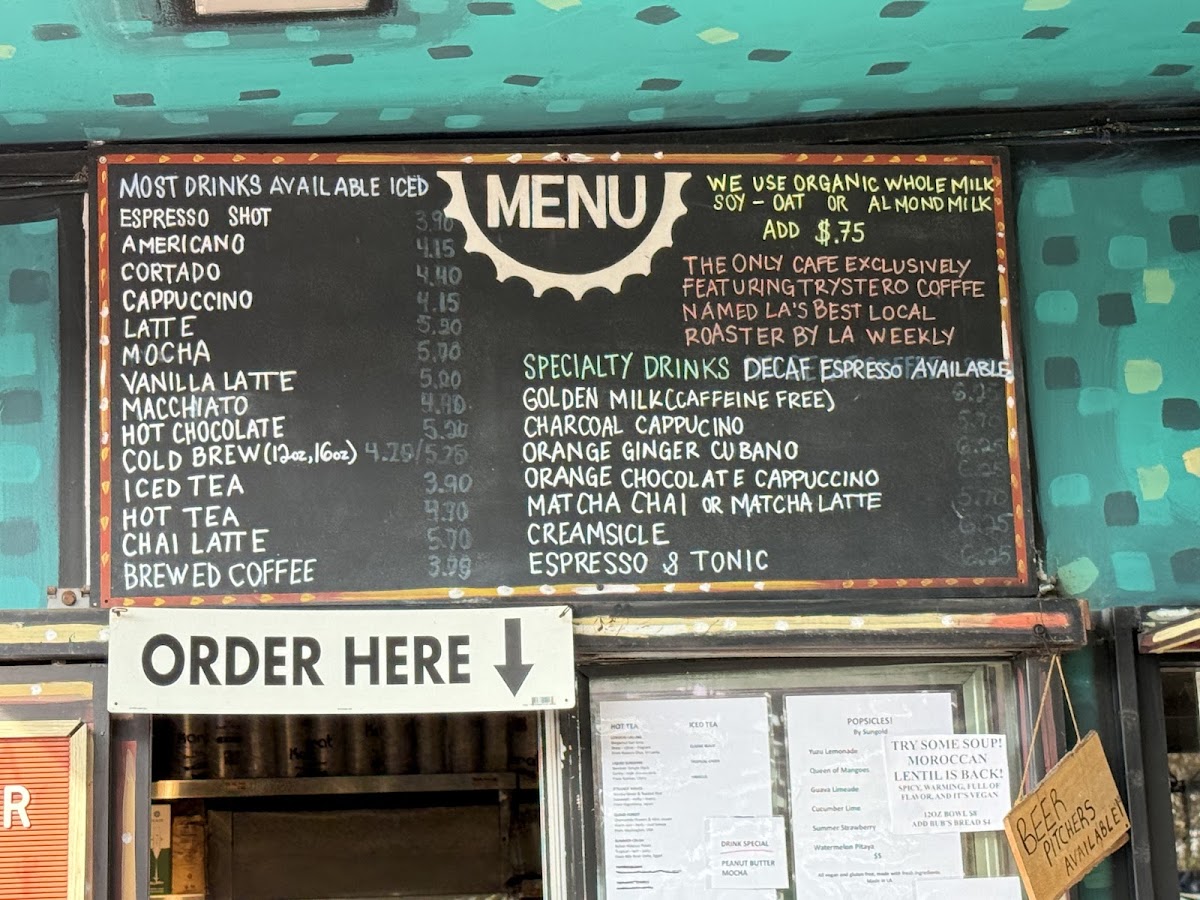 MOST DRINKS AVAILABLE ICED
ESPRESSO SHOT 3.90
AMERICANO 4.15
CORTADO 4.40
CAPPUCCINO 4.15
LATTE
MOCHA 5.70
VANILLA LATTE
MACCHIATO
HOT CHOCOLATE
COLD BREW (12oz, 16oz)
ICED TEA 3.90
HOT TEA
CHAI LATTE 5.70
BREWED COFFEE
MENU
WE USE ORGANIC WHOLE MILK
SOY - OAT OR ALMOND MILK
ADD $.75
THE ONLY CAFE EXCLUSIVELY
FEATURING TRYSTERO COFFFE
NAMED LA'S BEST LOCAL
ROASTER BY LA WEEKLY
SPECIALTY DRINKS DECAF ESPRESSO AVAILABLE
GOLDEN MILK (CAFFEINE FREE) 6.25
CHARCOAL CAPPUCINO
ORANGE GINGER CUBANO 6.25
ORANGE CHOCOLATE CAPPUCCINO 6.25
MATCHA CHAI OR MATCHA LATTE 5.70
CREAMSICLE 6.25
ESPRESSO & TONIC 6.25
ORDER HERE
R
HOT TEA
ICED TEA
DRINK SPECIAL
PEANUT BUTTER
MOCHA
POPSICLES!
By Sungold
Yuzu Lemonade
Queen of Mangoes
Guava Limeade
Cucumber Lime
Summer Strawberry
Watermelon Pitaya
$5
All vegan and gluten free, made with fresh ingredients
Made in LA
TRY SOME SOUP!
MOROCCAN
LENTIL IS BACK!
SPICY, WARMING, FULL OF
FLAVOR, AND IT'S VEGAN
12OZ BOWL $8
ADD BUB'S BREAD $4
BEER
PITCHERS
AVAILABLE!